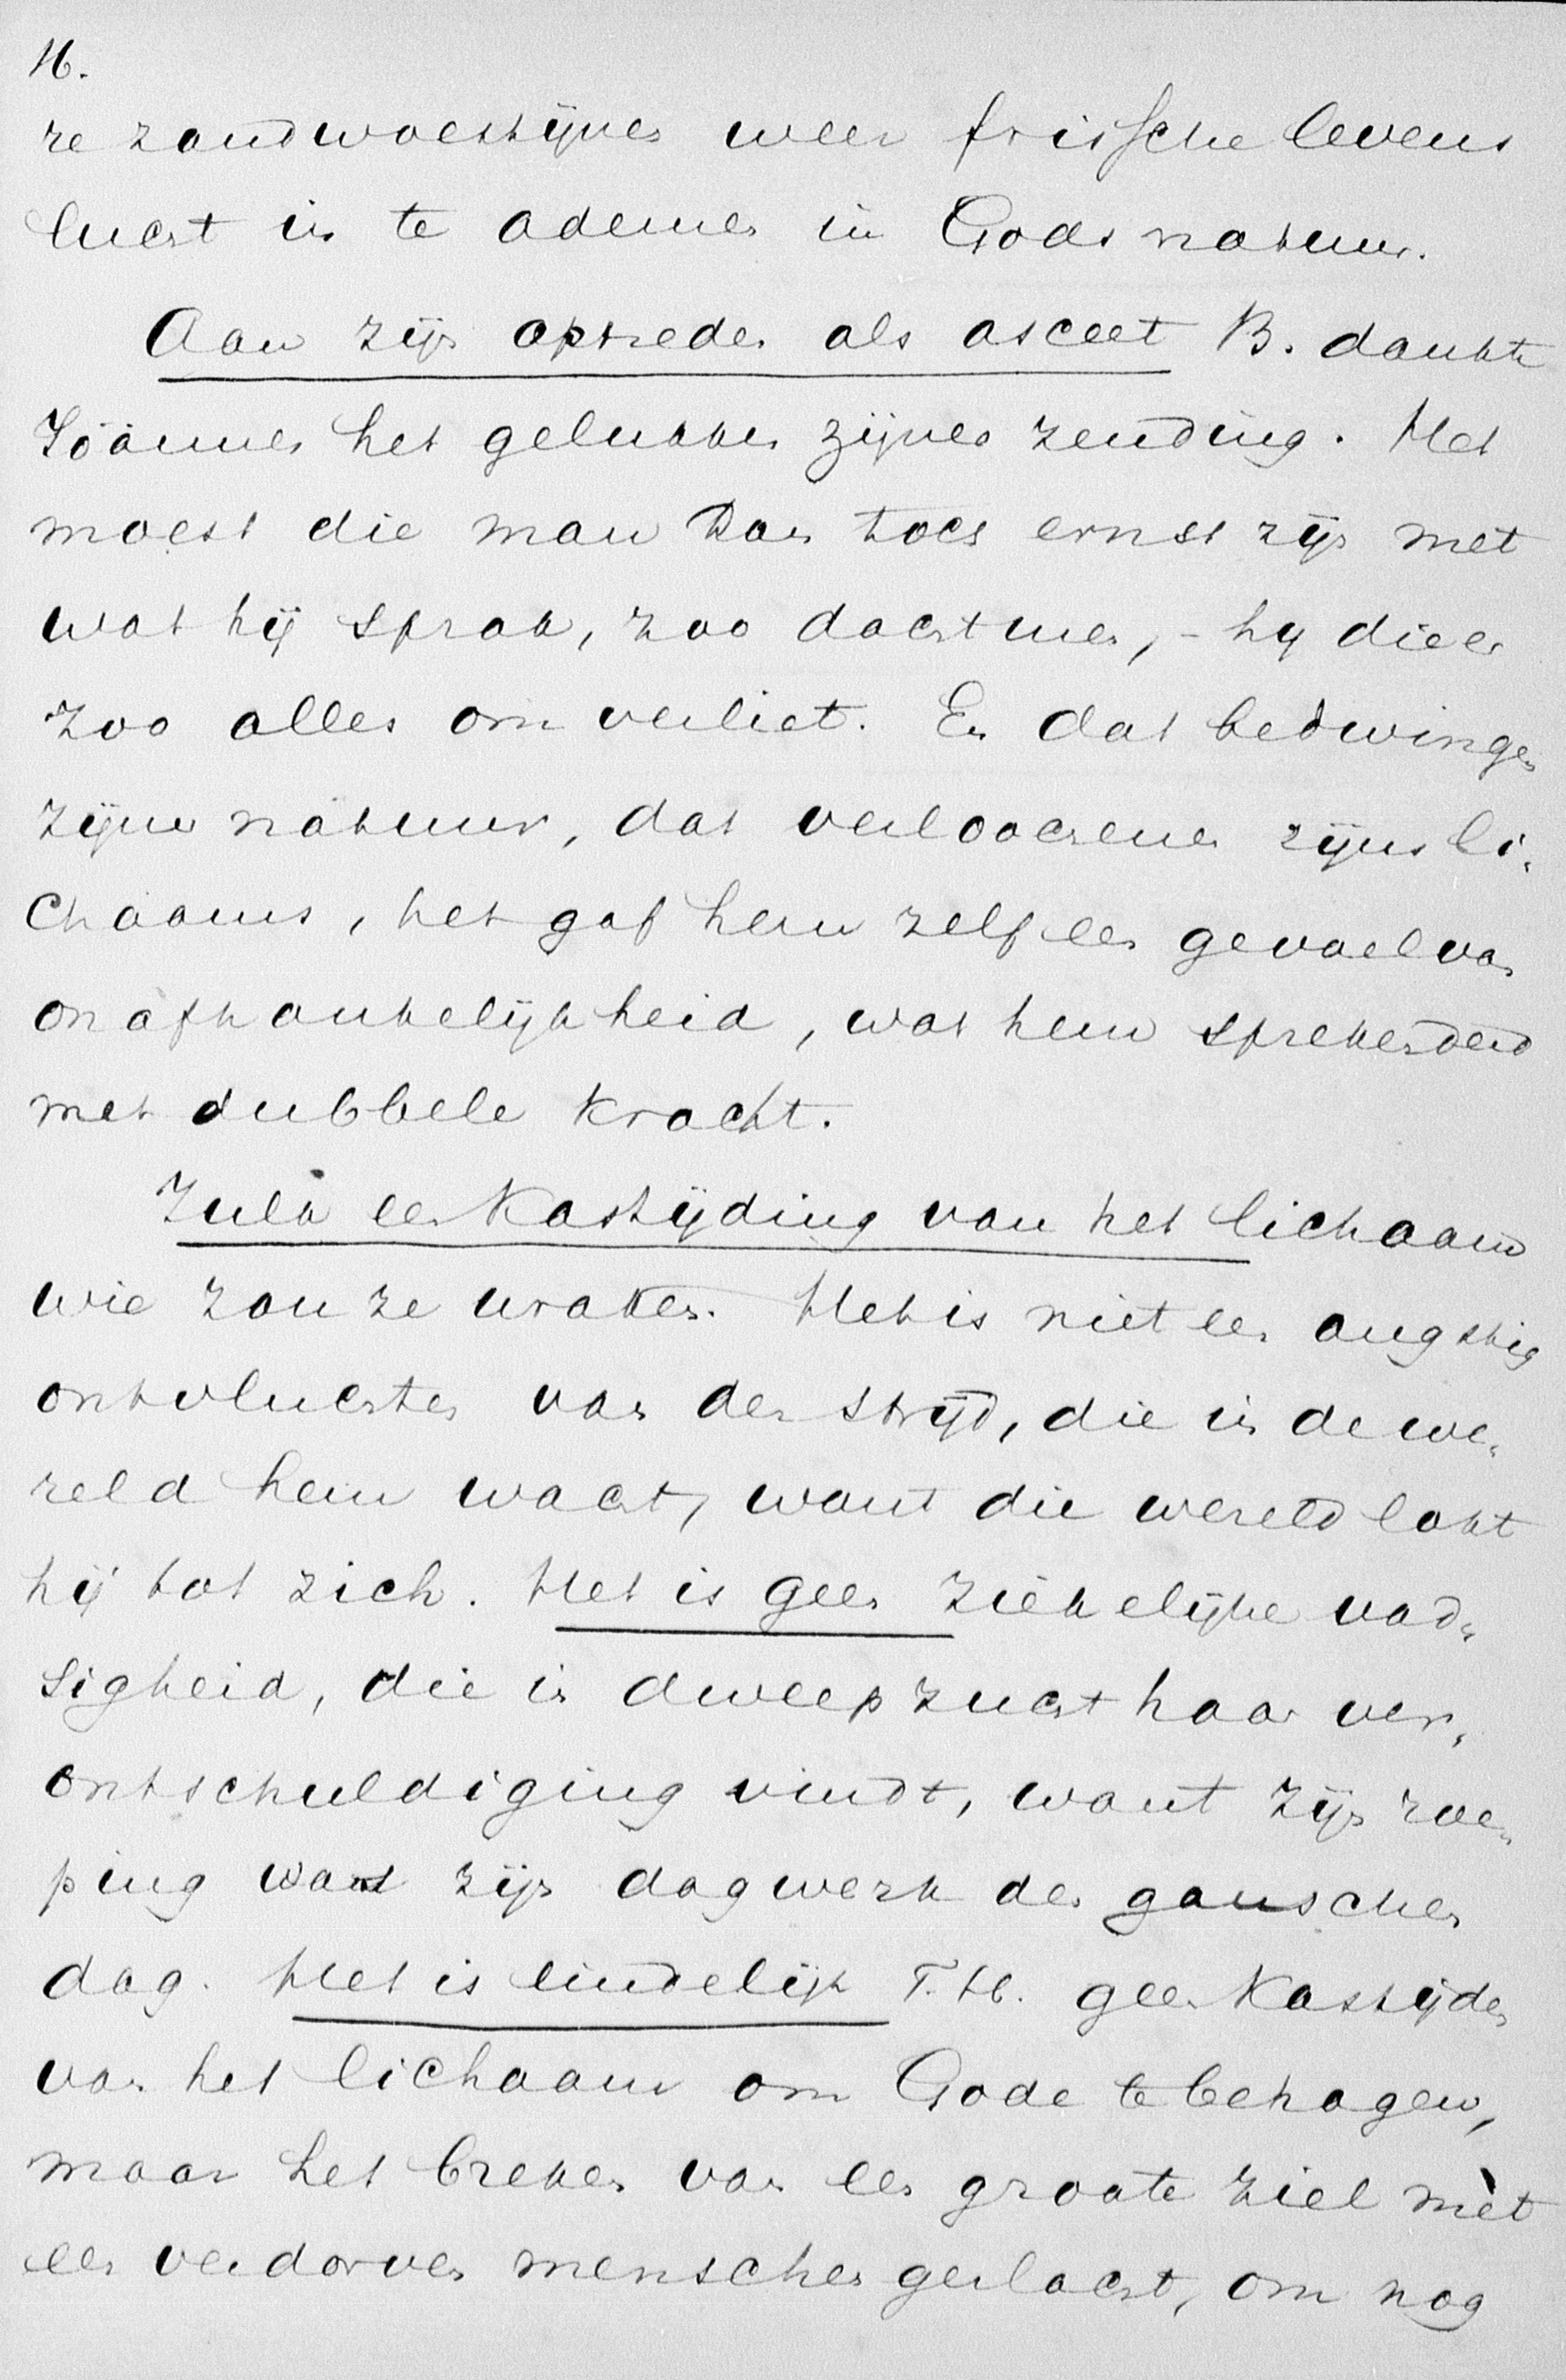 16.
re zandwoestijnen weer frissche levens
lucht in te ademen in Gods natuur.
Aan zijn optreden als asceet B. dankte
Jöannes het gelukken zijner zending. Het
moest die man dan toch ernst zijn met
wat hij sprak, zoo dacht men, - hij die er
zoo alles om verliet. En dat bedwingen
zijner natuur, dat verloochenen zijns li-
chaams, het gaf hem zelf een gevoel van
onafhankelijkheid, wat hem spreken deed
met dubbele kracht.
Zulk een kastijding van het lichaam
wie zou ze wraken. Het is niet een angstig
ontvluchten van den strijd, die in de we-
reld hem wacht, want die wereld lokt
hij tot zich. Het is geen ziekelijke vad-
sigheid, die in dweepzucht haar ver-
ontschuldiging vindt, want zijn roe-
ping was zijn dagwerk den ganschen
dag. Het is eindelijk T. H. geen kastijden
van het lichaam om Gode te behagen,
maar het breken van een groote ziel mèt
een verdorven menschengeslacht, om nog